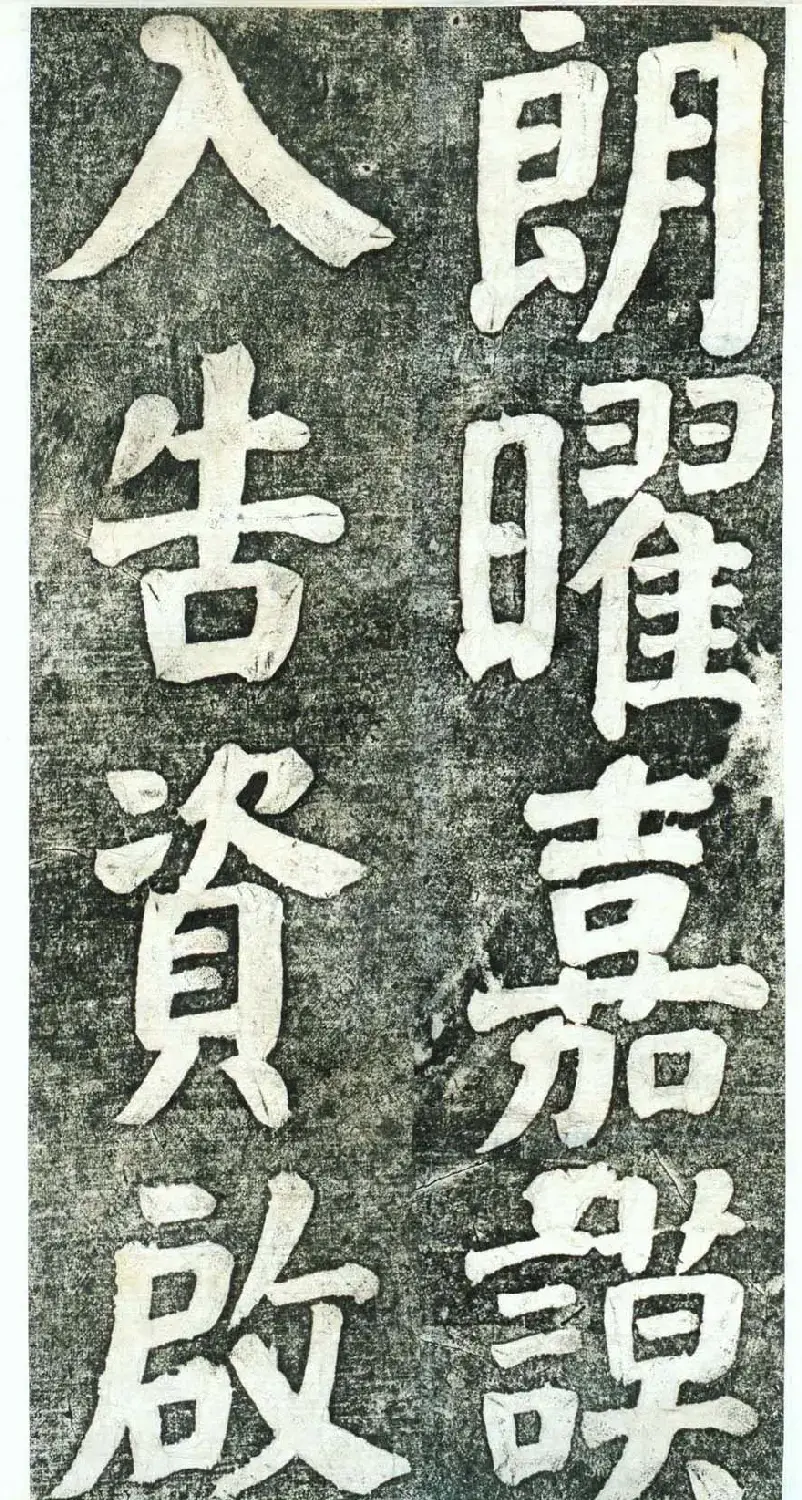 朗曜嘉謨
入告資啟